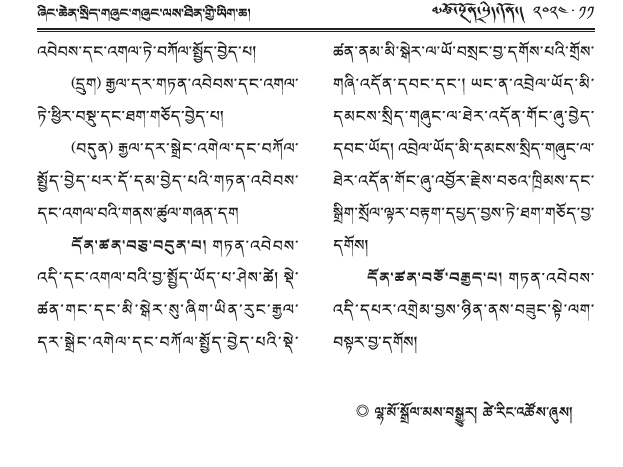 ཞིང་ཆེན་སྲིད་གཞུང་གཞུང་ལས་ཐིན་གྱི་ཡིག་ཆ།
༢༠༢༤·༡༡
འབེབས་དང་འགལ་ཏེ་བཀོལ་སྤྱོད་བྱེད་པ།
(དྲུག) རྒྱལ་དར་གཏན་འབེབས་དང་འགལ་
ཏེ་ཕྱིར་བསྡུ་དང་ཐག་གཅོད་བྱེད་པ།
(བདུན) རྒྱལ་དར་སྒྲེང་འགེལ་དང་བཀོལ་
སྤྱོད་བྱེད་པར་དོ་དམ་བྱེད་པའི་གཏན་འབེབས་
དང་འགལ་བའི་གནས་ཚུལ་གཞན་དག
དོན་ཚན་བཅུ་བདུན་པ། གཏན་འབེབས་
འདི་དང་འགལ་བའི་བྱ་སྤྱོད་ཡོད་པ་ཤེས་ཚེ། སྡེ་
ཚན་གང་དང་མི་སྒེར་སུ་ཞིག་ཡིན་རུང་རྒྱལ་
དར་སྒྲེང་འགེལ་དང་བཀོལ་སྤྱོད་བྱེད་པའི་སྡེ་
ཚན་ནམ་མི་སྒེར་ལ་ཡོ་བསྲང་བྱ་དགོས་པའི་གྲོས་
གཞི་འདོན་དབང་དང་། ཡང་ན་འབྲེལ་ཡོད་མི་
དམངས་སྲིད་གཞུང་ལ་ཐེར་འདོན་གོང་ཞུ་བྱེད་
དབང་ཡོད། འབྲེལ་ཡོད་མི་དམངས་སྲིད་གཞུང་ལ་
ཐེར་འདོན་གོང་ཞུ་འབྱོར་རྗེས་བཅའ་ཁྲིམས་དང་
སྒྲིག་སྲོལ་ལྟར་བརྟག་དཔྱད་བྱས་ཏེ་ཐག་གཅོད་བྱ་
དགོས།
དོན་ཚན་བཅོ་བརྒྱད་པ། གཏན་འབེབས་
འདི་དཔར་འགྲེམ་བྱས་ཉིན་ནས་བཟུང་སྟེ་ལག་
བསྟར་བྱ་དགོས།
◎ ལྷ་མོ་སྒྲོལ་མས་བསྒྱུར། ཚེ་རིང་འཚོས་ཞུས།